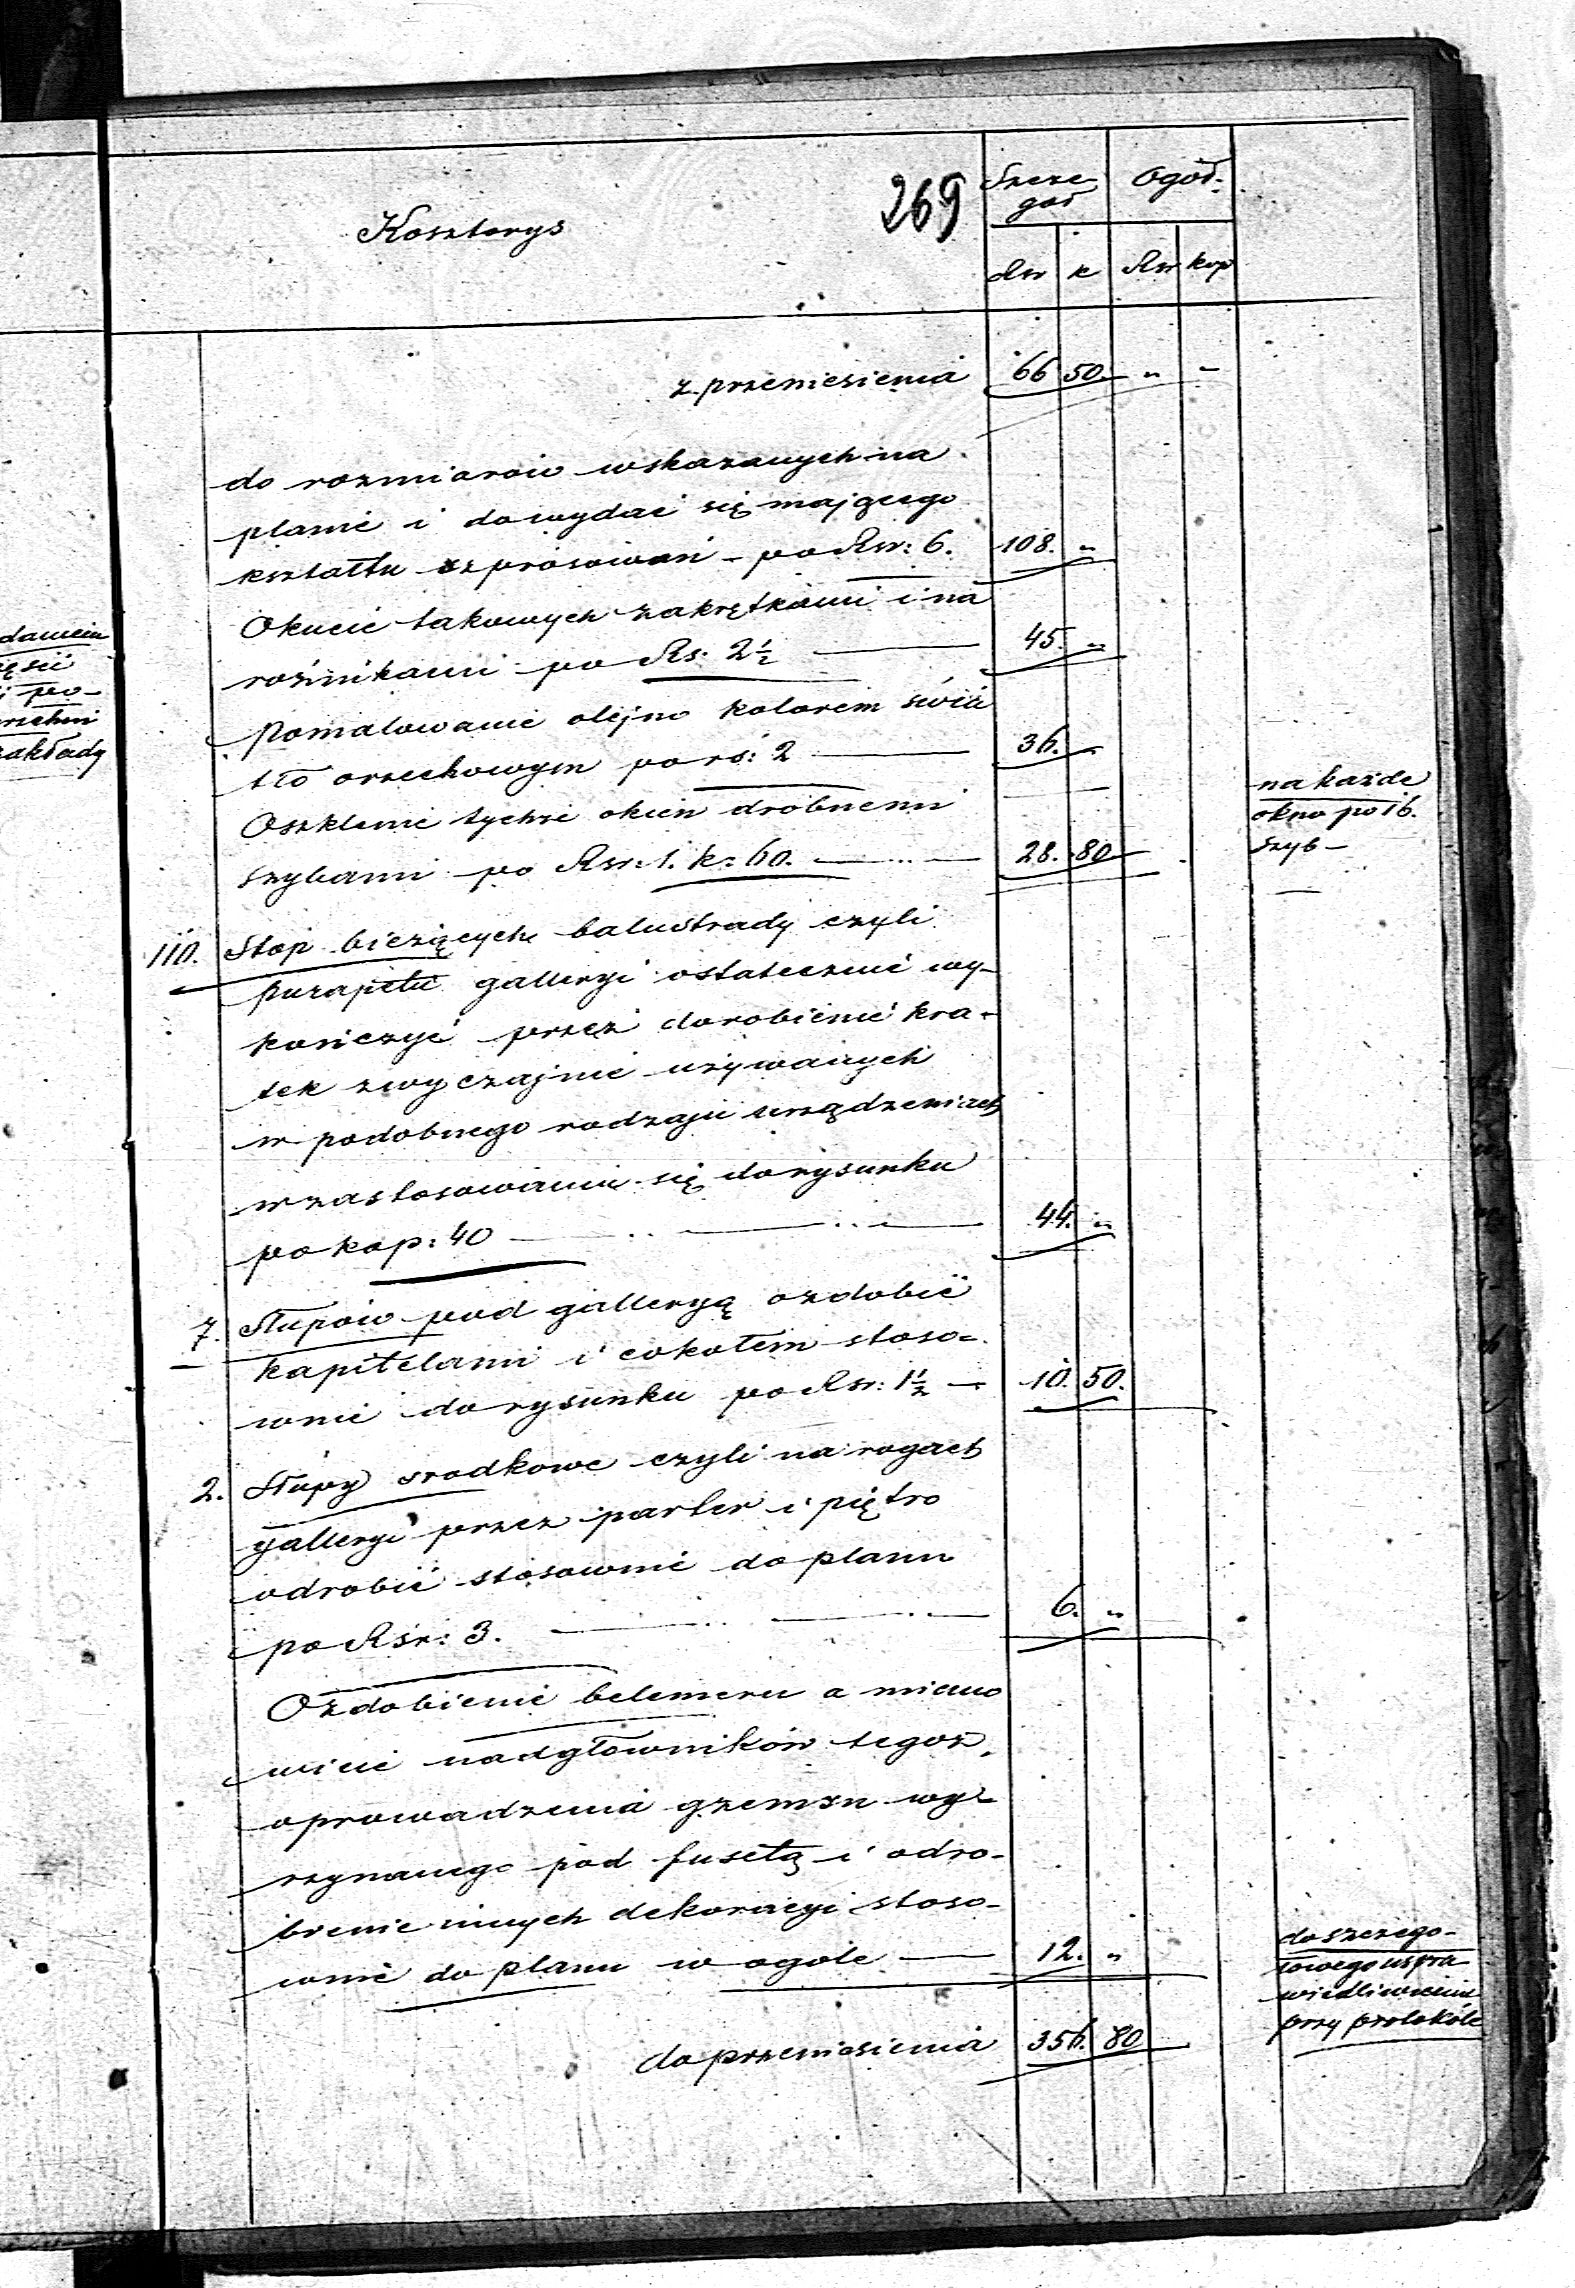 269
Kosztorys
Szcze-
goł
Ogoł.
Rsr k Rsr kop
z przeniesienia 66 50. " "
do rozmiarów wskazanych na
planie i do wydać się mającego
kształtu szprosowań - po Rsr: 6. 108. "
Okucie takowych zakrętkami i na
rożnikami po Rs: 2½ — 45. "
Pomalowanie olejno kolorem świa
tło orzechowym po rs: 2 — 36. "
Oszklenie tychże okien drobnemi
szybami po Rsr: 1. k: 60. — 28. 80
na każde
okno po 16.
szyb -
110. Stop bieżących balustrady czyli
parapetu galleryi ostatecznie wy-
kończyć przez dorobienie kra-
tek zwyczajnie używanych
w podobnego rodzaju urządzeniach
w zastosowaniu się do rysunku
po kop: 40 — 44. "
7. Słupów pod galleryą ozdobić
kapitelami i cokołem stoso-
wnie do rysunku po Rsr: 1½ — 10. 50.
2. Słupy srodkowe czyli na rogach
galleryi przez parter i piętro
odrobić stosownie do planu
po Rsr: 3. — 6. "
Ozdobienie belemeru a miano
wicie nadgłowników tegoż,
oprowadzenia gzemsu wy-
rzynanego pod fusetą i odro-
bienie innych dekoracyi stoso-
wnie do planu w ogóle — 12. "
do szczego-
łowego uspra
wiedliwienia
przy protokóle
do przeniesienia 356. 80
dawein
ęsić
i po-
rzchni
zakłady